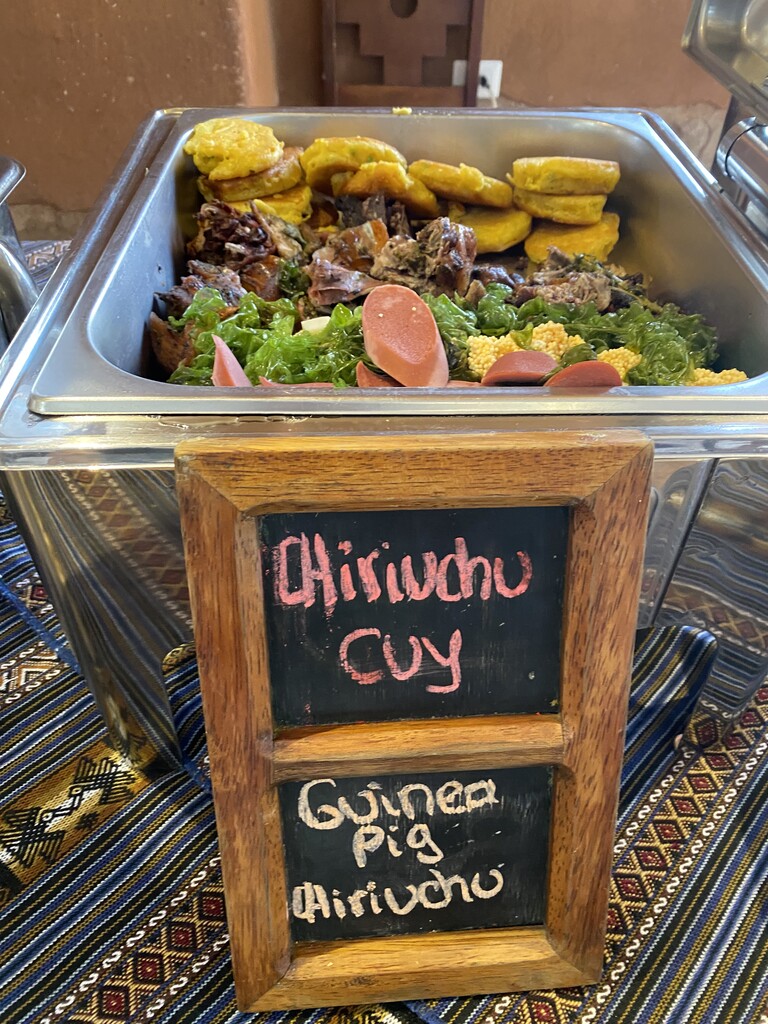 CHiriuchu
CUy
Guinea
Pig
CHiriuchu